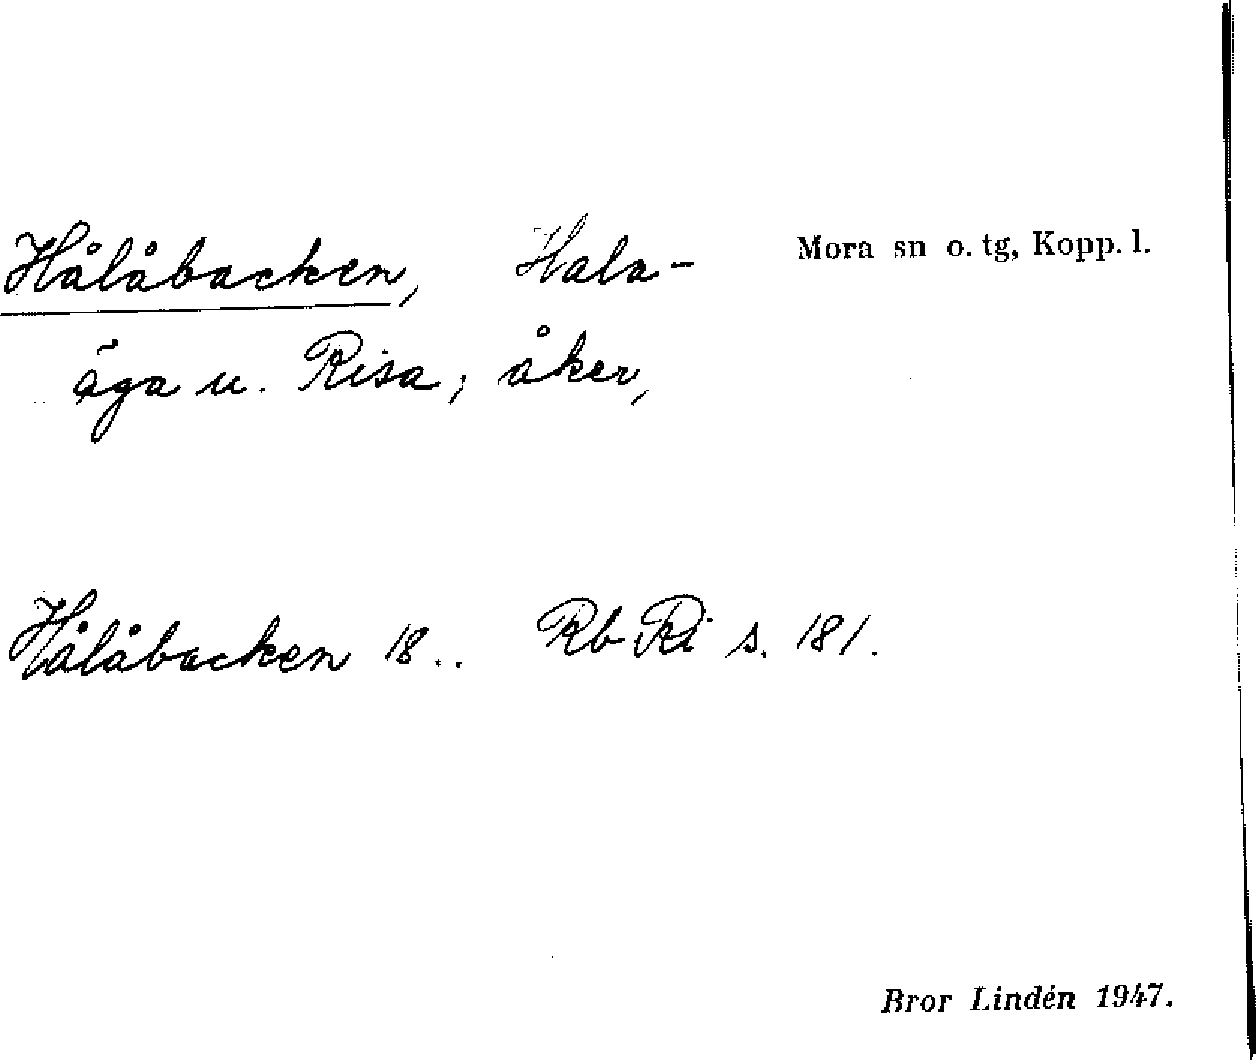 Hålåbacken, Hala-
Mora sn o. tg, Kopp. l.
äga u. Risa; åker,
Hålåbacken 18.. Rb Ri s. 181.
Bror Lindén 1947.